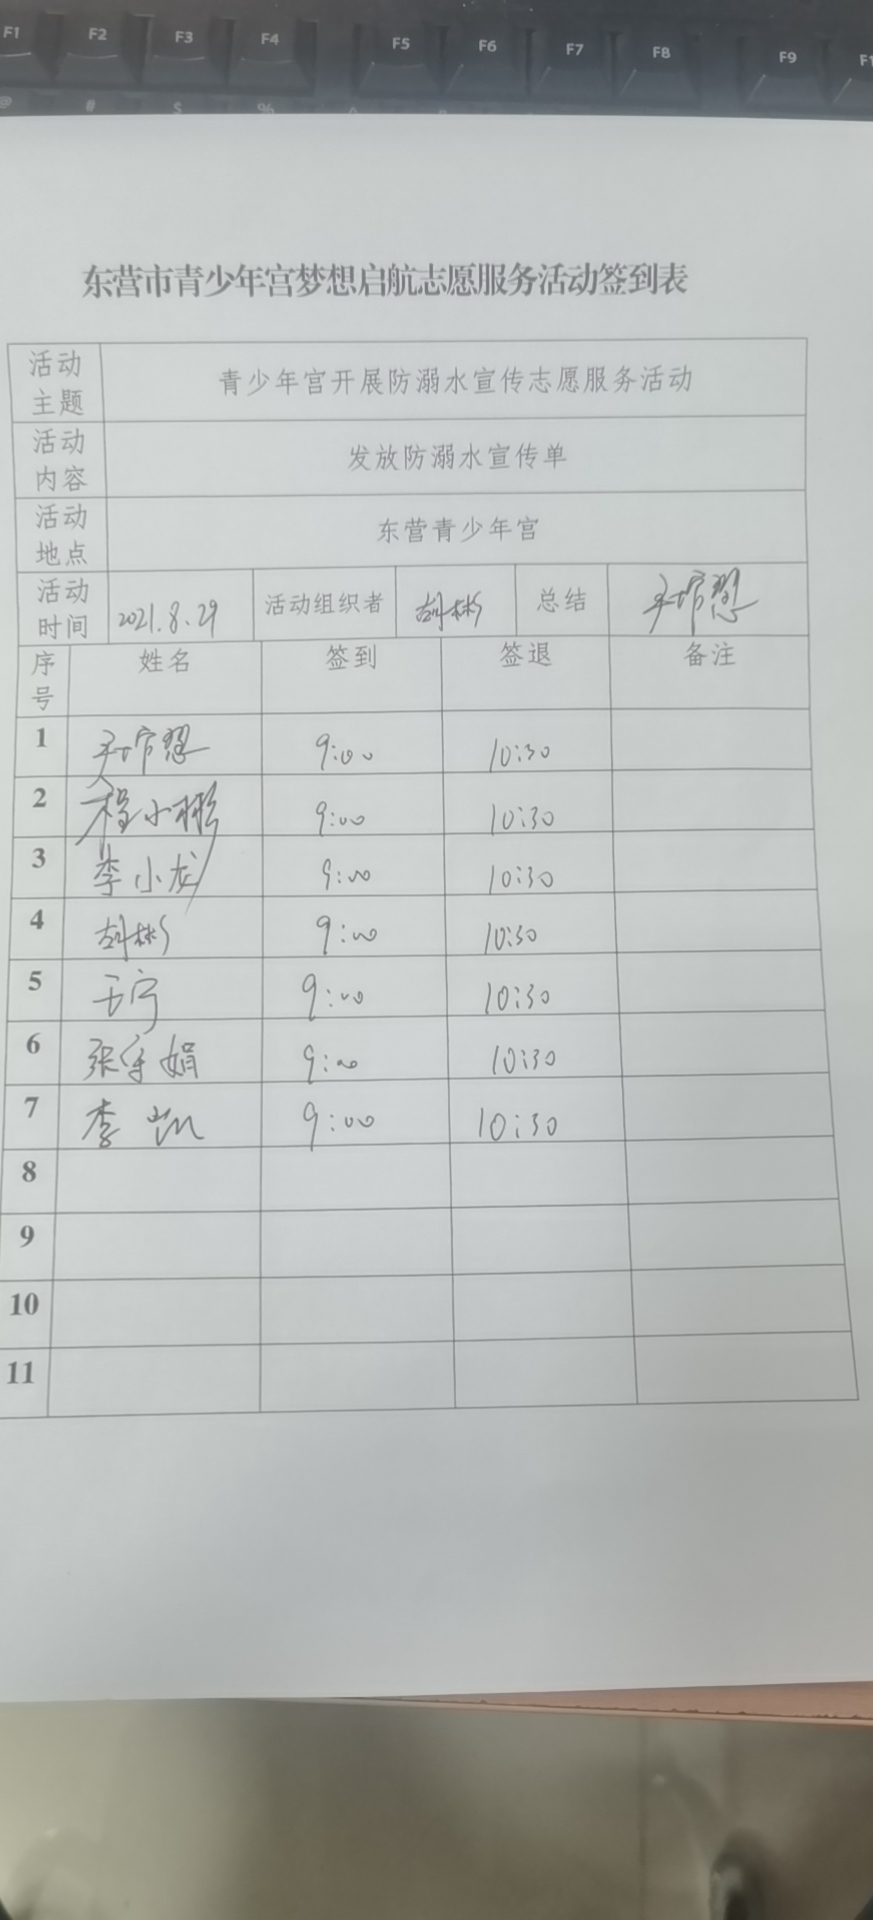 F1 F2 F3 F4 F5 F6 F7 F8 F9
@ # $ %
东营市青少年宫梦想启航志愿服务活动签到表
活动主题 青少年宫开展防溺水宣传志愿服务活动
活动内容 发放防溺水宣传单
活动地点 东营青少年宫
活动时间 2021.8.29 活动组织者 胡彬 总结
序号 姓名 签到 签退 备注
1 9:00 10:30
2 程小彬 9:00 10:30
3 李小龙 9:00 10:30
4 胡彬 9:00 10:30
5 王宁 9:00 10:30
6 张 娟 9:00 10:30
7 李凯 9:00 10:30
8
9
10
11